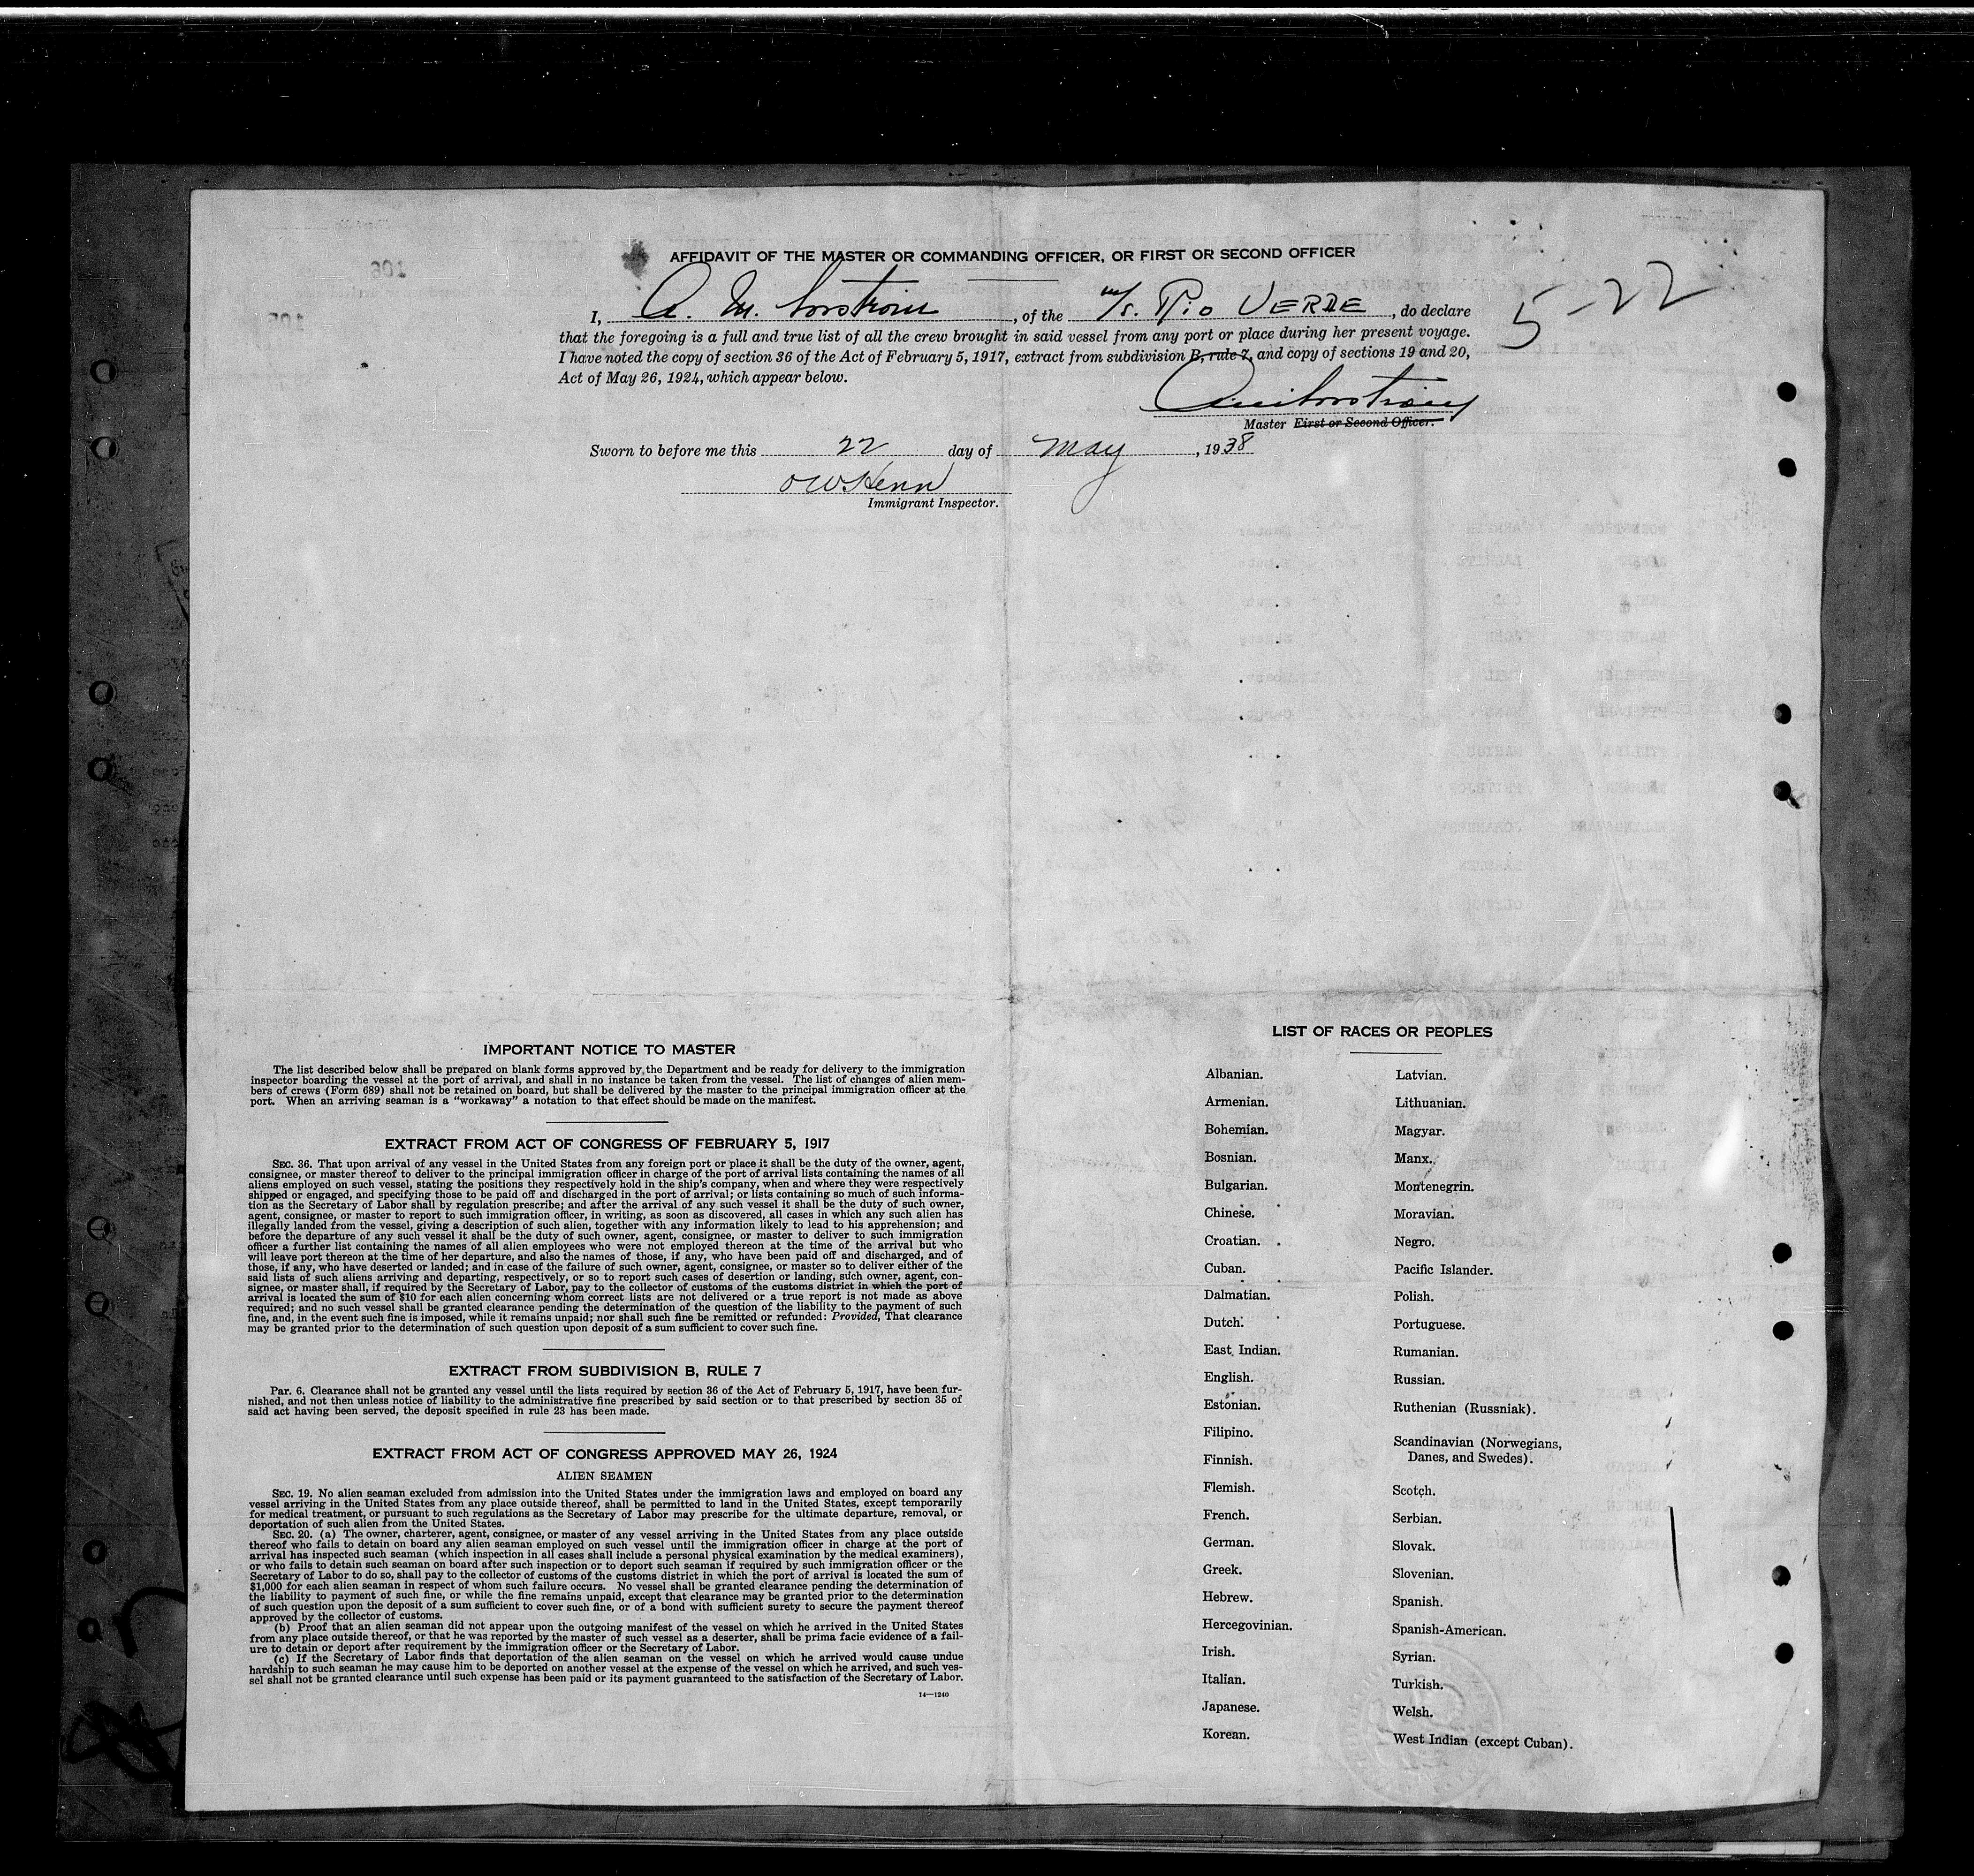 AFFIDAVIT OF THE MASTER OR COMMANDING OFFICER, OR FIRST OR SECOND OFFICER
5-22
I, A. M. , of the M/S. Rio VERDE, do declare
that the foregoing is a full and true list of all the crew brought in said vessel from any port or place during her present voyage.
I have noted the copy of section 36 of the Act of February 5, 1917, extract from subdivision B, rule 7, and copy of sections 19 and 20,
Act of May 26, 1924, which appear below.
Master First or Second Officer.
Sworn to before me this 22 day of May, 1938
OWHenn
Immigrant Inspector.
IMPORTANT NOTICE TO MASTER
The list described below shall be prepared on blank forms approved by the Department and be ready for delivery to the immigration
inspector boarding the vessel at the port of arrival, and shall in no instance be taken from the vessel. The list of changes of alien mem-
bers of crews (Form 689) shall not be retained on board, but shall be delivered by the master to the principal immigration officer at the
port. When an arriving seaman is a "workaway" a notation to that effect should be made on the manifest.
EXTRACT FROM ACT OF CONGRESS OF FEBRUARY 5, 1917
SEC. 36. That upon arrival of any vessel in the United States from any foreign port or place it shall be the duty of the owner, agent,
consignee, or master thereof to deliver to the principal immigration officer in charge of the port of arrival lists containing the names of all
aliens employed on such vessel, stating the positions they respectively hold in the ship's company, when and where they were respectively
shipped or engaged, and specifying those to be paid off and discharged in the port of arrival; or lists containing so much of such informa-
tion as the Secretary of Labor shall by regulation prescribe; and after the arrival of any such vessel it shall be the duty of such owner,
agent, consignee, or master to report to such immigration officer, in writing, as soon as discovered, all cases in which any such alien has
illegally landed from the vessel, giving a description of such alien, together with any information likely to lead to his apprehension; and
before the departure of any such vessel it shall be the duty of such owner, agent, consignee, or master to deliver to such immigration
officer a further list containing the names of all alien employees who were not employed thereon at the time of the arrival but who
will leave port thereon at the time of her departure, and also the names of those, if any, who have been paid off and discharged, and of
those, if any, who have deserted or landed; and in case of the failure of such owner, agent, consignee, or master so to deliver either of the
said lists of such aliens arriving and departing, respectively, or so to report such cases of desertion or landing, such owner, agent, con-
signee, or master shall, if required by the Secretary of Labor, pay to the collector of customs of the customs district in which the port of
arrival is located the sum of $10 for each alien concerning whom correct lists are not delivered or a true report is not made as above
required; and no such vessel shall be granted clearance pending the determination of the question of the liability to the payment of such
fine, and, in the event such fine is imposed, while it remains unpaid; nor shall such fine be remitted or refunded: Provided, That clearance
may be granted prior to the determination of such question upon deposit of a sum sufficient to cover such fine.
EXTRACT FROM SUBDIVISION B, RULE 7
Par. 6. Clearance shall not be granted any vessel until the lists required by section 36 of the Act of February 5, 1917, have been fur-
nished, and not then unless notice of liability to the administrative fine prescribed by said section or to that prescribed by section 35 of
said act having been served, the deposit specified in rule 23 has been made.
EXTRACT FROM ACT OF CONGRESS APPROVED MAY 26, 1924
ALIEN SEAMEN
SEC. 19. No alien seaman excluded from admission into the United States under the immigration laws and employed on board any
vessel arriving in the United States from any place outside thereof, shall be permitted to land in the United States, except temporarily
for medical treatment, or pursuant to such regulations as the Secretary of Labor may prescribe for the ultimate departure, removal, or
deportation of such alien from the United States.
SEC. 20. (a) The owner, charterer, agent, consignee, or master of any vessel arriving in the United States from any place outside
thereof who fails to detain on board any alien seaman employed on such vessel until the immigration officer in charge at the port of
arrival has inspected such seaman (which inspection in all cases shall include a personal physical examination by the medical examiners),
or who fails to detain such seaman on board after such inspection or to deport such seaman if required by such immigration officer or the
Secretary of Labor to do so, shall pay to the collector of customs of the customs district in which the port of arrival is located the sum of
$1,000 for each alien seaman in respect of whom such failure occurs. No vessel shall be granted clearance pending the determination of
the liability to payment of such fine, or while the fine remains unpaid, except that clearance may be granted prior to the determination
of such question upon the deposit of a sum sufficient to cover such fine, or of a bond with sufficient surety to secure the payment thereof
approved by the collector of customs.
(b) Proof that an alien seaman did not appear upon the outgoing manifest of the vessel on which he arrived in the United States
from any place outside thereof, or that he was reported by the master of such vessel as a deserter, shall be prima facie evidence of a fail-
ure to detain or deport after requirement by the immigration officer or the Secretary of Labor.
(c) If the Secretary of Labor finds that deportation of the alien seaman on the vessel on which he arrived would cause undue
hardship to such seaman he may cause him to be deported on another vessel at the expense of the vessel on which he arrived, and such ves-
sel shall not be granted clearance until such expense has been paid or its payment guaranteed to the satisfaction of the Secretary of Labor.
14—1240
LIST OF RACES OR PEOPLES
Albanian.
Armenian.
Bohemian.
Bosnian.
Bulgarian.
Chinese.
Croatian.
Cuban.
Dalmatian.
Dutch.
East Indian.
English.
Estonian.
Filipino.
Finnish.
Flemish.
French.
German.
Greek.
Hebrew.
Hercegovinian.
Irish.
Italian.
Japanese.
Korean.
Latvian.
Lithuanian.
Magyar.
Manx.
Montenegrin.
Moravian.
Negro.
Pacific Islander.
Polish.
Portuguese.
Rumanian.
Russian.
Ruthenian (Russniak).
Scandinavian (Norwegians,
Danes, and Swedes).
Scotch.
Serbian.
Slovak.
Slovenian.
Spanish.
Spanish-American.
Syrian.
Turkish.
Welsh.
West Indian (except Cuban).